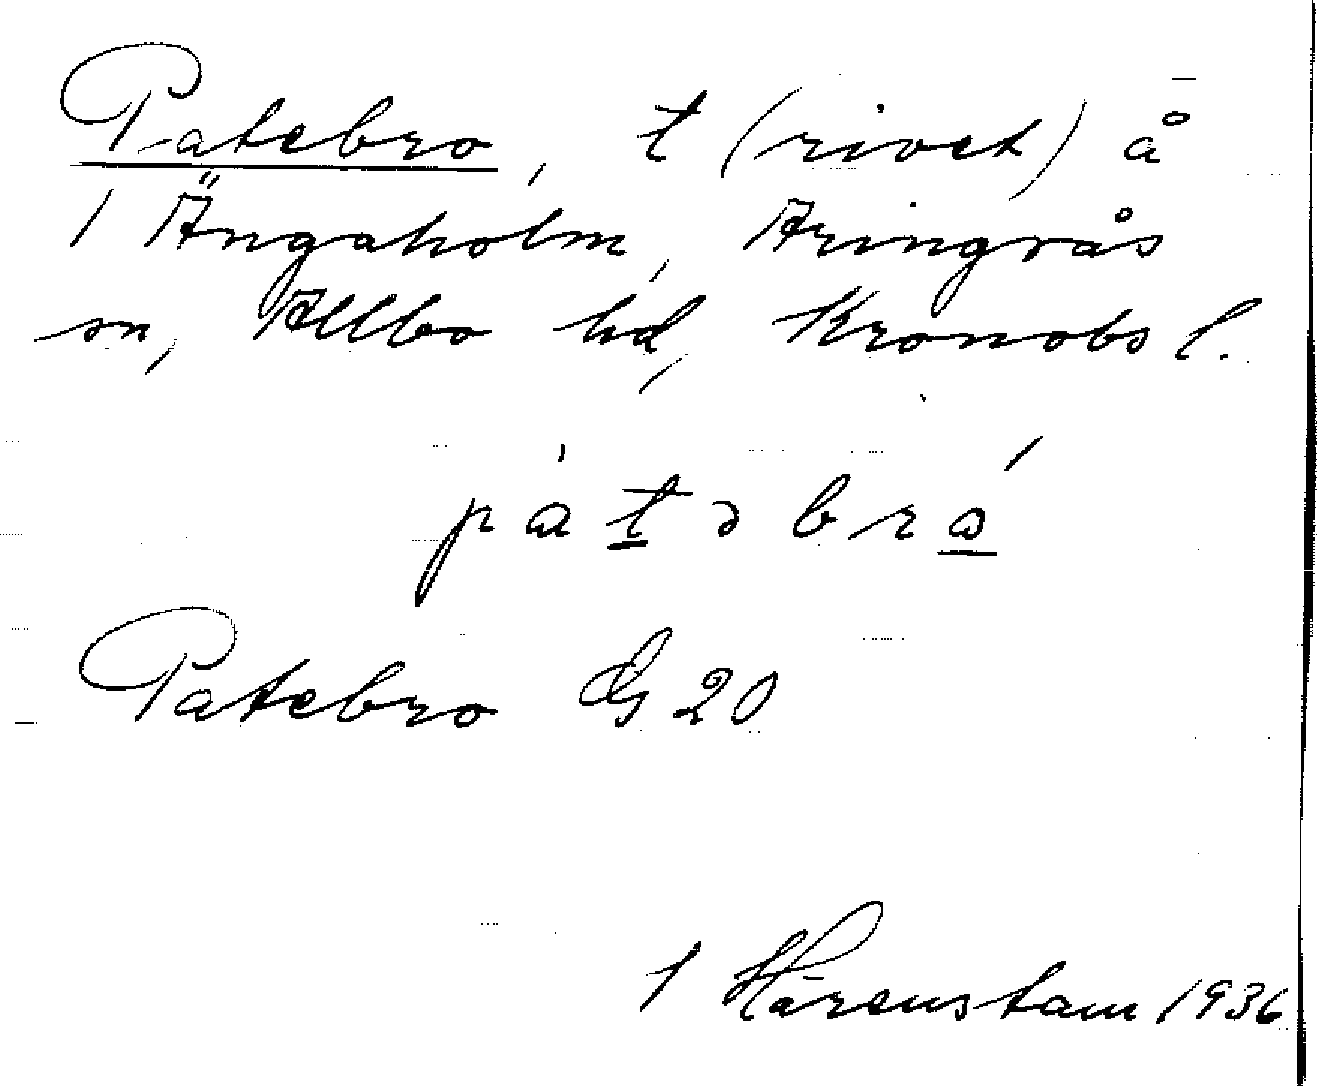 Patebro, t (rivet) å
1 Ängaholm, Aringsås
sn, Allbo hd, Kronobs l.
pàtəbrá
Patebro G 20
1 Hårenstam 1936